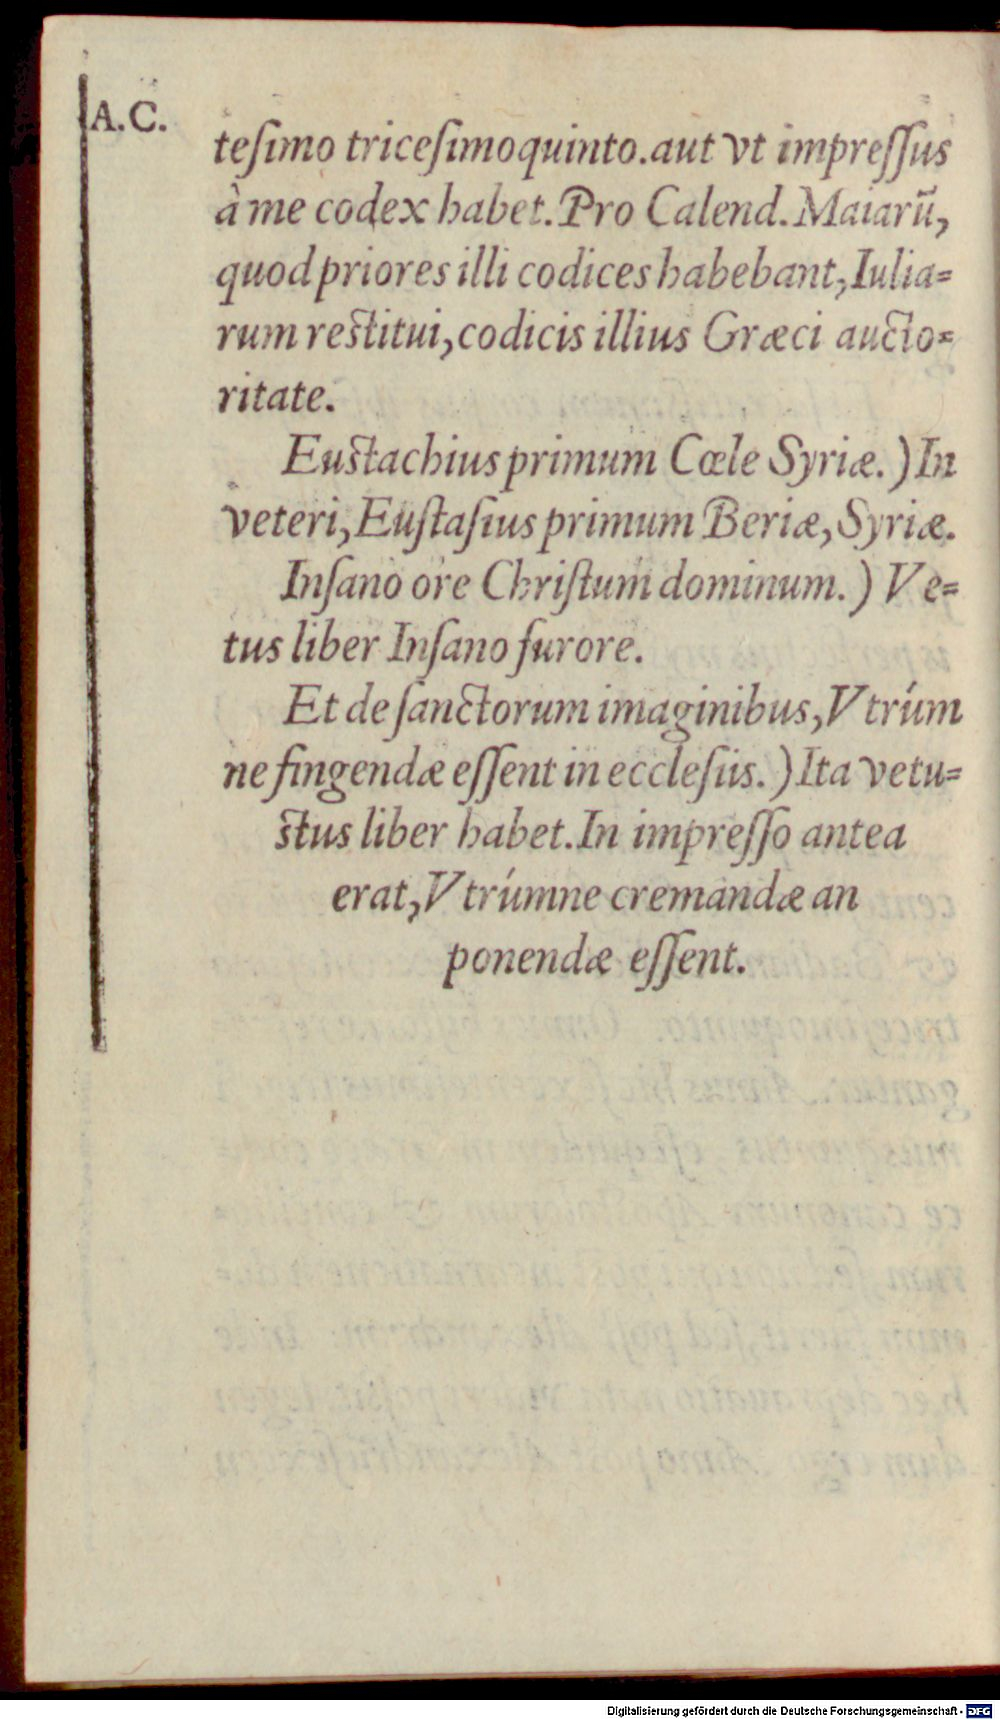 A.C.
teſimo triceſimoquinto. aut vt impreſſus
à me codex habet. Pro Calend. Maiarũ,
quod priores illi codices habebant, Iulia=
rum reſtitui, codicis illius Græci aucto=
ritate.
Euſtachius primum Cœle Syriæ.) In
veteri, Euſtaſius primum Beriæ, Syriæ.
Inſano ore Chriſtum dominum.) Ve=
tus liber Inſano furore.
Et de ſanctorum imaginibus, Vtrúm
ne fingendæ eſſent in eccleſiis.) Ita vetu=
ſtus liber habet. In impreſſo antea
erat, Vtrúmne cremandæ an
ponendæ eſſent.
Digitalisierung gefördert durch die Deutsche Forschungsgemeinschaft - DFG